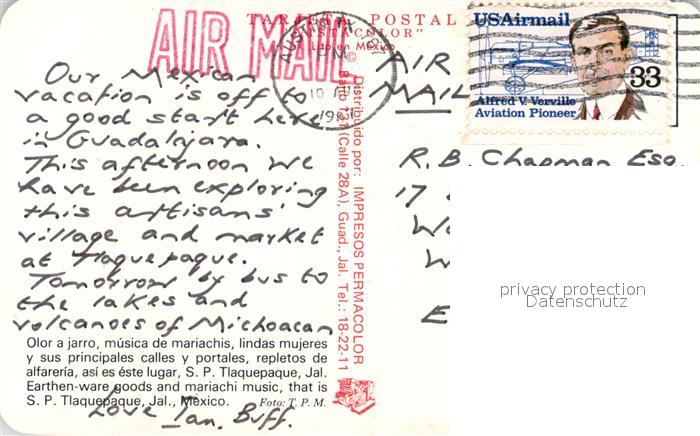 AIR MAIL
TARJETA POSTAL
"VISTACOLOR"
Lito en México
©
AUSTIN
PM
10
1985
USAirmail
33
Alfred V. Verville
Aviation Pioneer
Our Mexican
vacation is off to
a good start here
in Guadalajara.
This afternoon we
have been exploring
this artisans'
village and market
at Tlaquepaque.
Tomorrow by bus to
the lakes and
volcanoes of Michoacan
Love Ian. Buff.
AIR
MAIL
R. B. Chapman Esq
17
W
E
Distribuido por: IMPRESOS PERMACOLOR
Bario 131 (Calle 28A), Guad., Jal. Tel.: 18-22-11
Olor a jarro, música de mariachis, lindas mujeres
y sus principales calles y portales, repletos de
alfarería, así es éste lugar, S. P. Tlaquepaque, Jal.
Earthen-ware goods and mariachi music, that is
S. P. Tlaquepaque, Jal., México. Foto: T. P. M.
privacy protection
Datenschutz